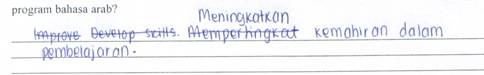 program bahasa arab?
Meningkatkan
Improve Develop skills. Mempertingkat kemahiran dalam
pembelajaran.